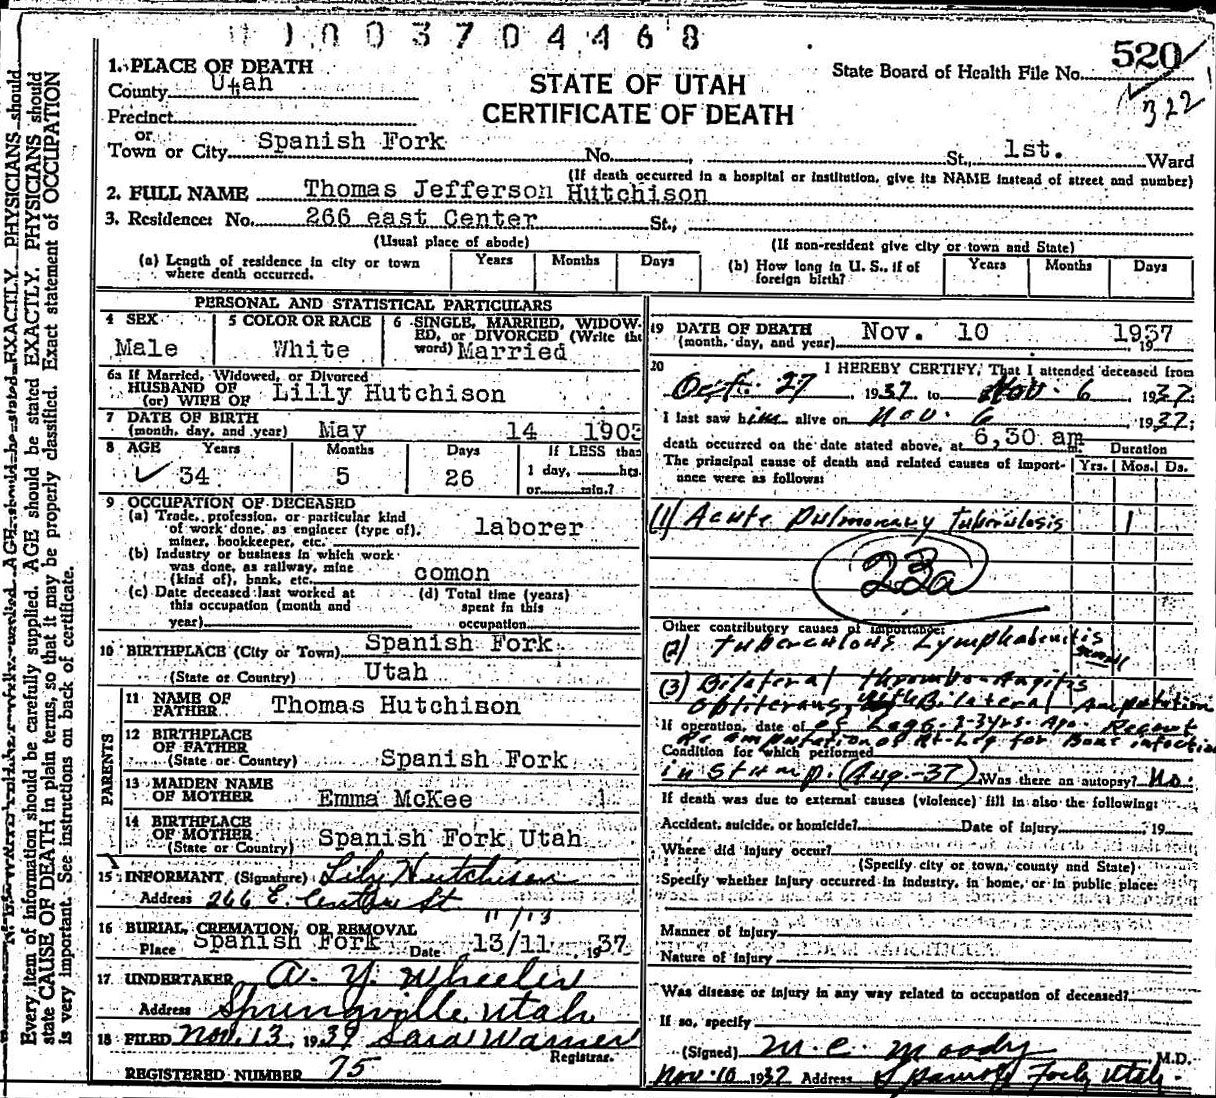 1003704468
520
322
1. PLACE OF DEATH
County Utah
STATE OF UTAH
CERTIFICATE OF DEATH
State Board of Health File No.
Precinct
or
Town or City Spanish Fork No. St., 1st. Ward
(If death occurred in a hospital or institution, give its NAME instead of street and number)
2. FULL NAME Thomas Jefferson Hutchison
3. Residence: No. 266 east Center St.,
(Usual place of abode) (If non-resident give city or town and State)
(a) Length of residence in city or town where death occurred. Years Months Days
(b) How long in U. S., if of foreign birth? Years Months Days
PERSONAL AND STATISTICAL PARTICULARS
4 SEX
Male
5 COLOR OR RACE
White
6 SINGLE, MARRIED, WIDOWED, or DIVORCED (Write the word) Married
6a If Married, Widowed, or Divorced
HUSBAND OF
(or) WIFE OF Lilly Hutchison
7 DATE OF BIRTH
(month, day, and year) May 14 1903
8 AGE Years Months Days If LESS than
34 5 26 1 day, hrs.
or min.?
9 OCCUPATION OF DECEASED
(a) Trade, profession, or particular kind
of work done, as engineer (type of),
miner, bookkeeper, etc. laborer
(b) Industry or business in which work
was done, as railway, mine
(kind of), bank, etc. comon
(c) Date deceased last worked at
this occupation (month and
year)
(d) Total time (years)
spent in this
occupation
10 BIRTHPLACE (City or Town) Spanish Fork
(State or Country) Utah
PARENTS
11 NAME OF
FATHER Thomas Hutchison
12 BIRTHPLACE
OF FATHER
(State or Country) Spanish Fork
13 MAIDEN NAME
OF MOTHER Emma McKee
14 BIRTHPLACE
OF MOTHER
(State or Country) Spanish Fork Utah
15 INFORMANT (Signature) Lily Hutchison
Address 266 E. Center St
16 BURIAL, CREMATION, OR REMOVAL 11/13
Place Spanish Fork Date 13/11 1937
17 UNDERTAKER A. Y. Wheeler
Address Springville, Utah
18 FILED Nov. 13, 1937 Sara Warner
Registrar.
REGISTERED NUMBER 75
19 DATE OF DEATH
(month, day, and year) Nov. 10 1937
19
20 I HEREBY CERTIFY, That I attended deceased from
Oct. 27 1937 to Nov. 6 1937;
I last saw him alive on Nov. 6, 1937;
death occurred on the date stated above, at 6,30 am
The principal cause of death and related causes of importance were as follows:
Duration
Yrs. Mos. Ds.
(1) Acute Pulmonary Tuberculosis 1
23a
Other contributory causes of importance:
(2) Tuberculous Lymphadenitis
(3) Bilateral Thrombo-Angitis
Obliterans, with Bilateral Amputation
If operation, date of of Legs. 2-3 yrs. Ago. Recent
Re amputation of Rt-Leg for Bone infection
Condition for which performed
in Stump. (Aug.-37) Was there an autopsy? No.
If death was due to external causes (violence) fill in also the following:
Accident, suicide, or homicide? Date of injury , 19
Where did injury occur?
(Specify city or town, county and State)
Specify whether injury occurred in industry, in home, or in public place:
Manner of injury
Nature of injury
Was disease or injury in any way related to occupation of deceased?
If so, specify
(Signed) M. C. Moody M.D.
Nov. 10 1937 Address Spanish Fork, Utah.
Every item of information should be carefully supplied. AGE should be stated EXACTLY. PHYSICIANS should
state CAUSE OF DEATH in plain terms, so that it may be properly classified. Exact statement of OCCUPATION
is very important. See instructions on back of certificate.